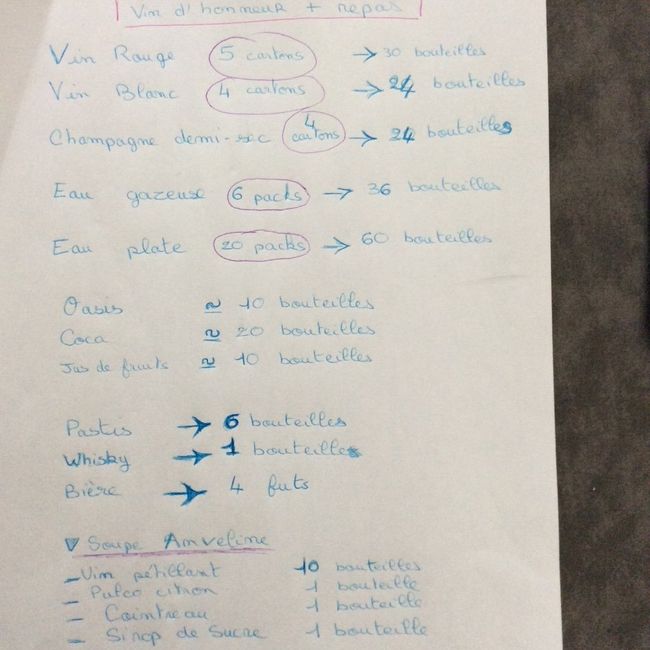 Vin d'honneur + repas
Vin Rouge 5 cartons → 30 bouteilles
Vin Blanc 4 cartons → 24 bouteilles
Champagne demi-sec 4 cartons → 24 bouteilles
Eau gazeuse 6 packs → 36 bouteilles
Eau plate 20 packs → 60 bouteilles
Oasis ≈ 10 bouteilles
Coca ≈ 20 bouteilles
Jus de fruits ≈ 10 bouteilles
Pastis → 6 bouteilles
Whisky → 1 bouteilles
Bière → 4 futs
▼ Soupe Anveline
- Vin pétillant 10 bouteilles
- Pulco citron 1 bouteille
- Cointreau 1 bouteille
- Sirop de Sucre 1 bouteille